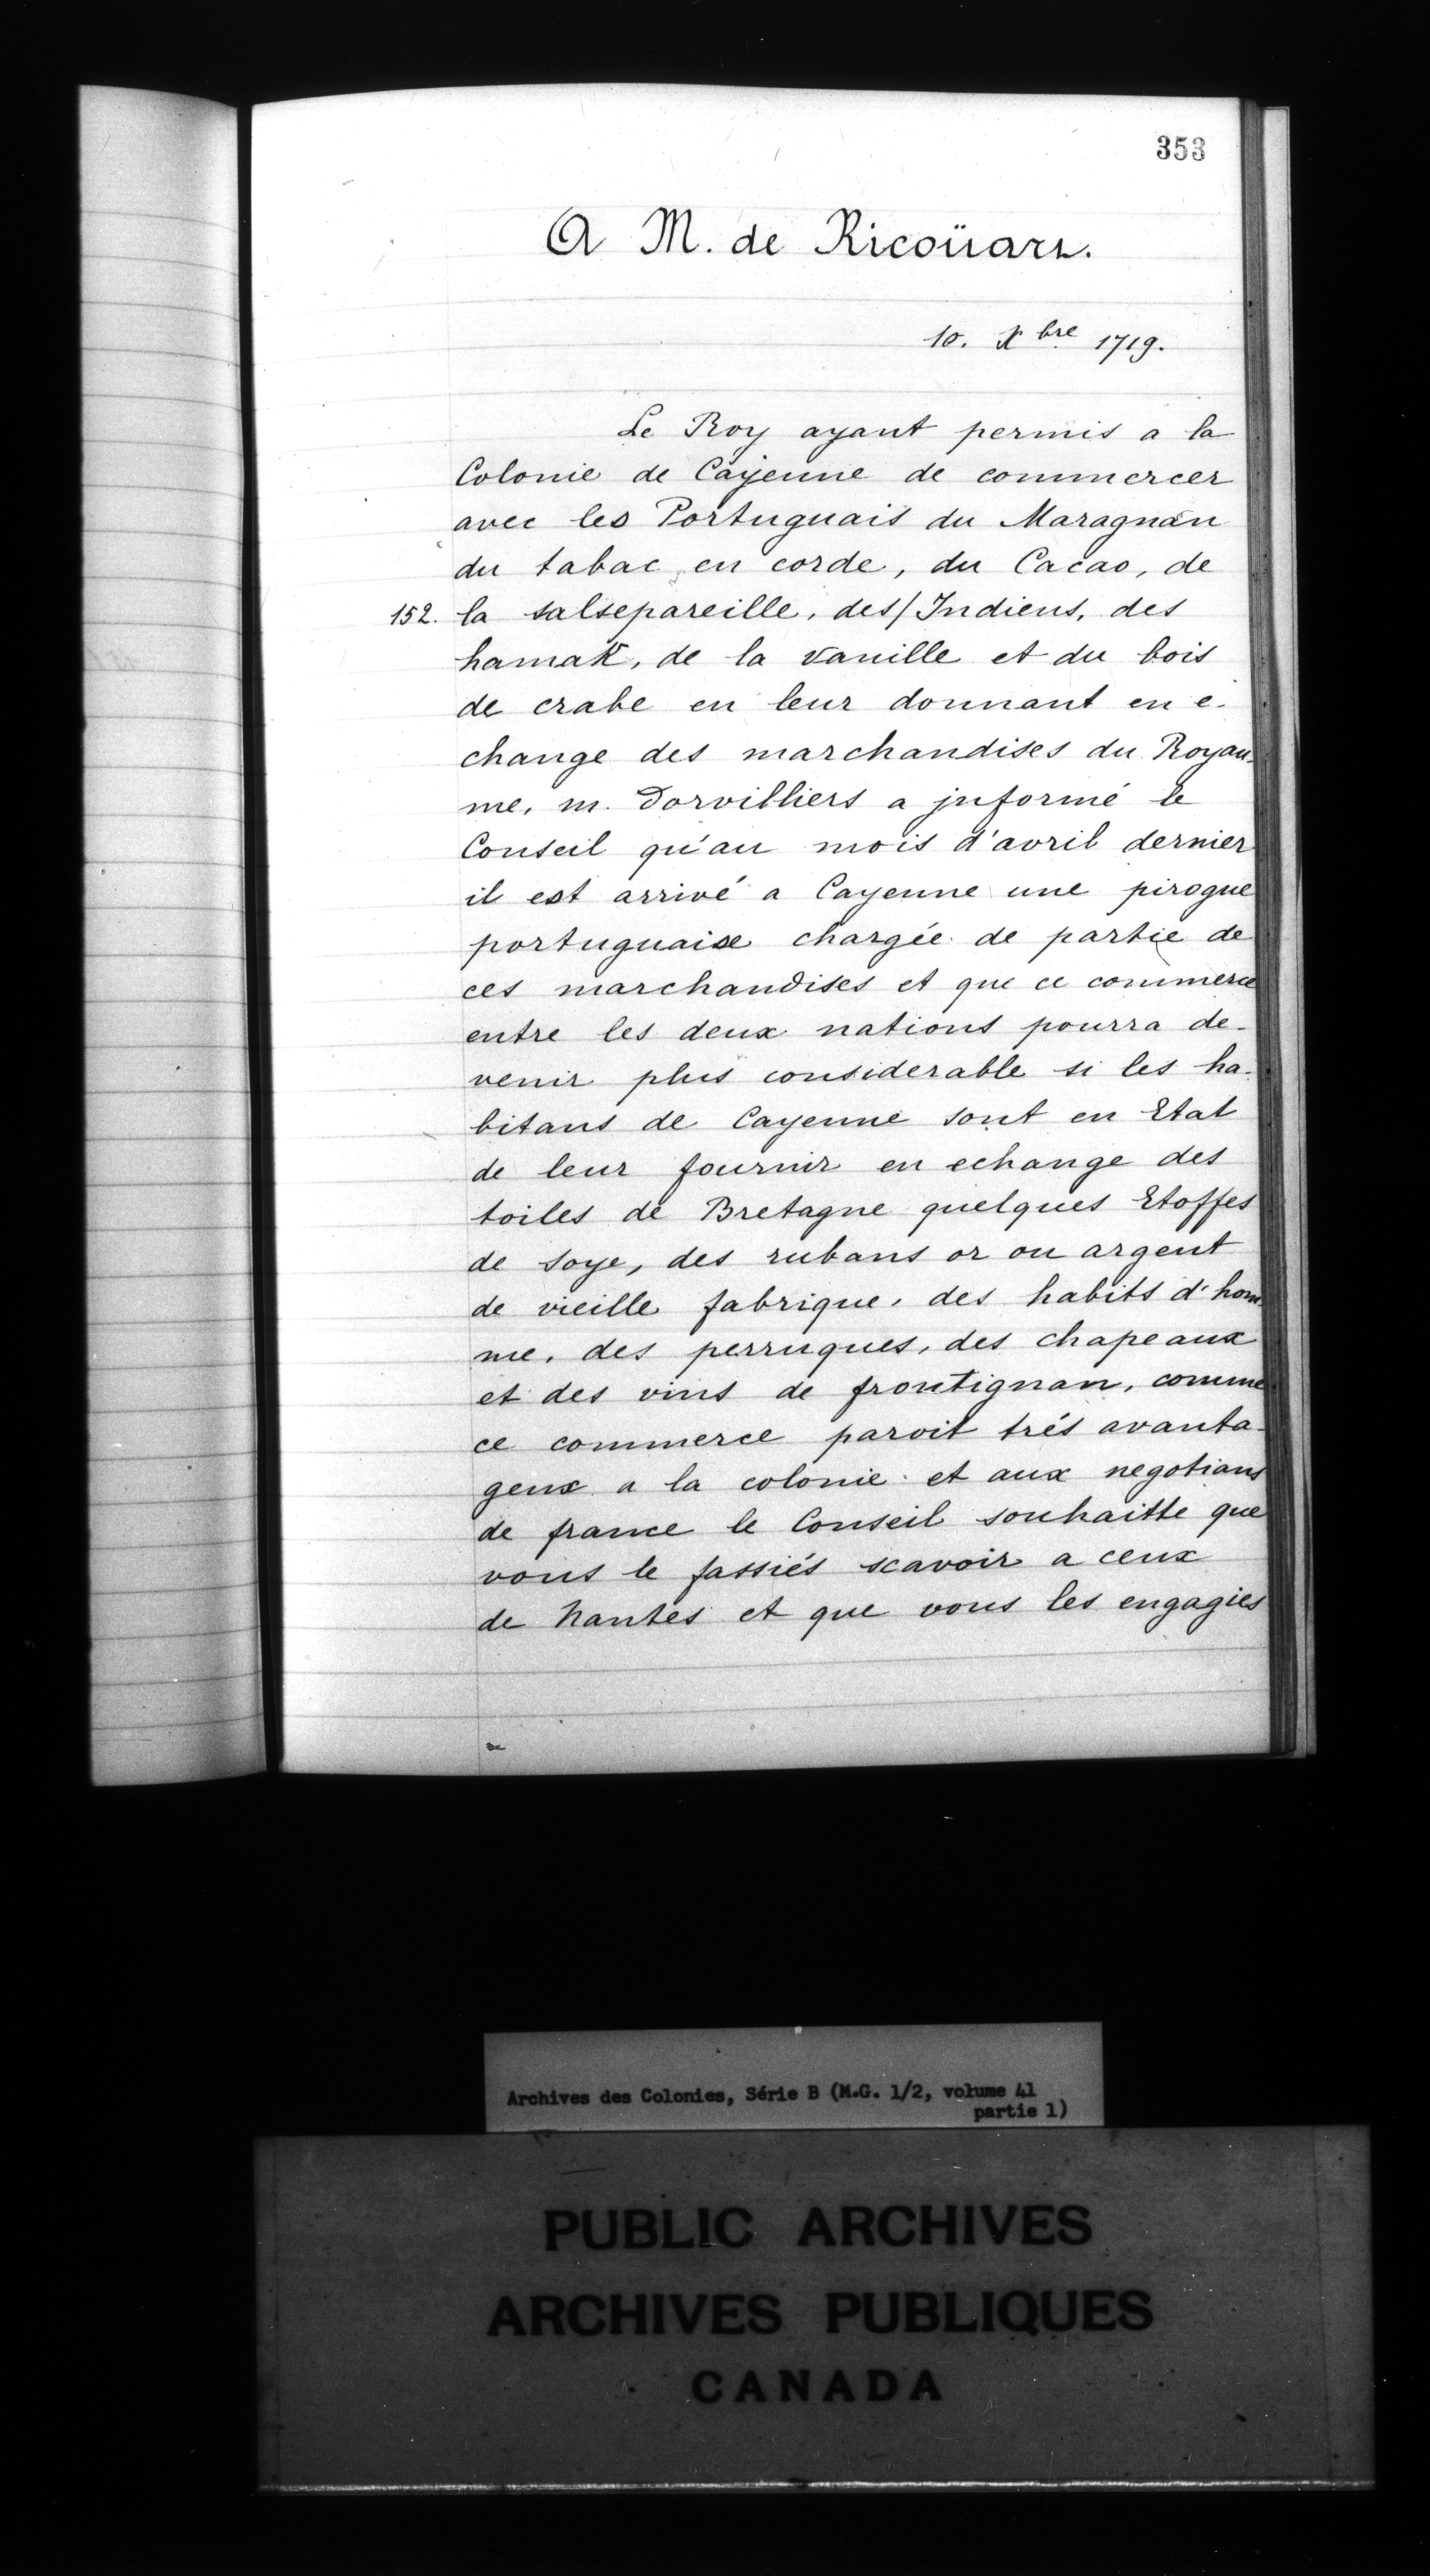 353
A M. de Ricoüart.
10. Xbre 1719.
Le Roy ayant permis a la
Colonie de Cayenne de commercer
avec les Portuguais du Maragnan
du tabac en corde, du Cacao, de
152. la salsepareille, des/Indiens, des
hamak, de la vanille et du bois
de crabe en leur donnant en é-
change des marchandises du Royau-
me, m. Dorvilliers a jnformé le
Conseil qu'au mois d'avril dernier
il est arrivé a Cayenne une pirogue
portuguaise chargée de partie de
ces marchandises et que ce commerce
entre les deux nations pourra de-
venir plus considerable si les ha-
bitans de Cayenne sont en Etat
de leur fournir en echange des
toiles de Bretagne quelques Etoffes
de soye, des rubans or ou argent
de vieille fabrique, des habits d'hom-
me, des perruques, des chapeaux
et des vins de frontignan, comme
ce commerce paroit trés avanta-
geux a la colonie et aux negotians
de france le Conseil souhaitte que
vous le fassiés scavoir a ceux
de Nantes et que vous les engagies
Archives des Colonies, Série B (M.G. 1/2, volume 41
partie 1)
PUBLIC ARCHIVES
ARCHIVES PUBLIQUES
CANADA